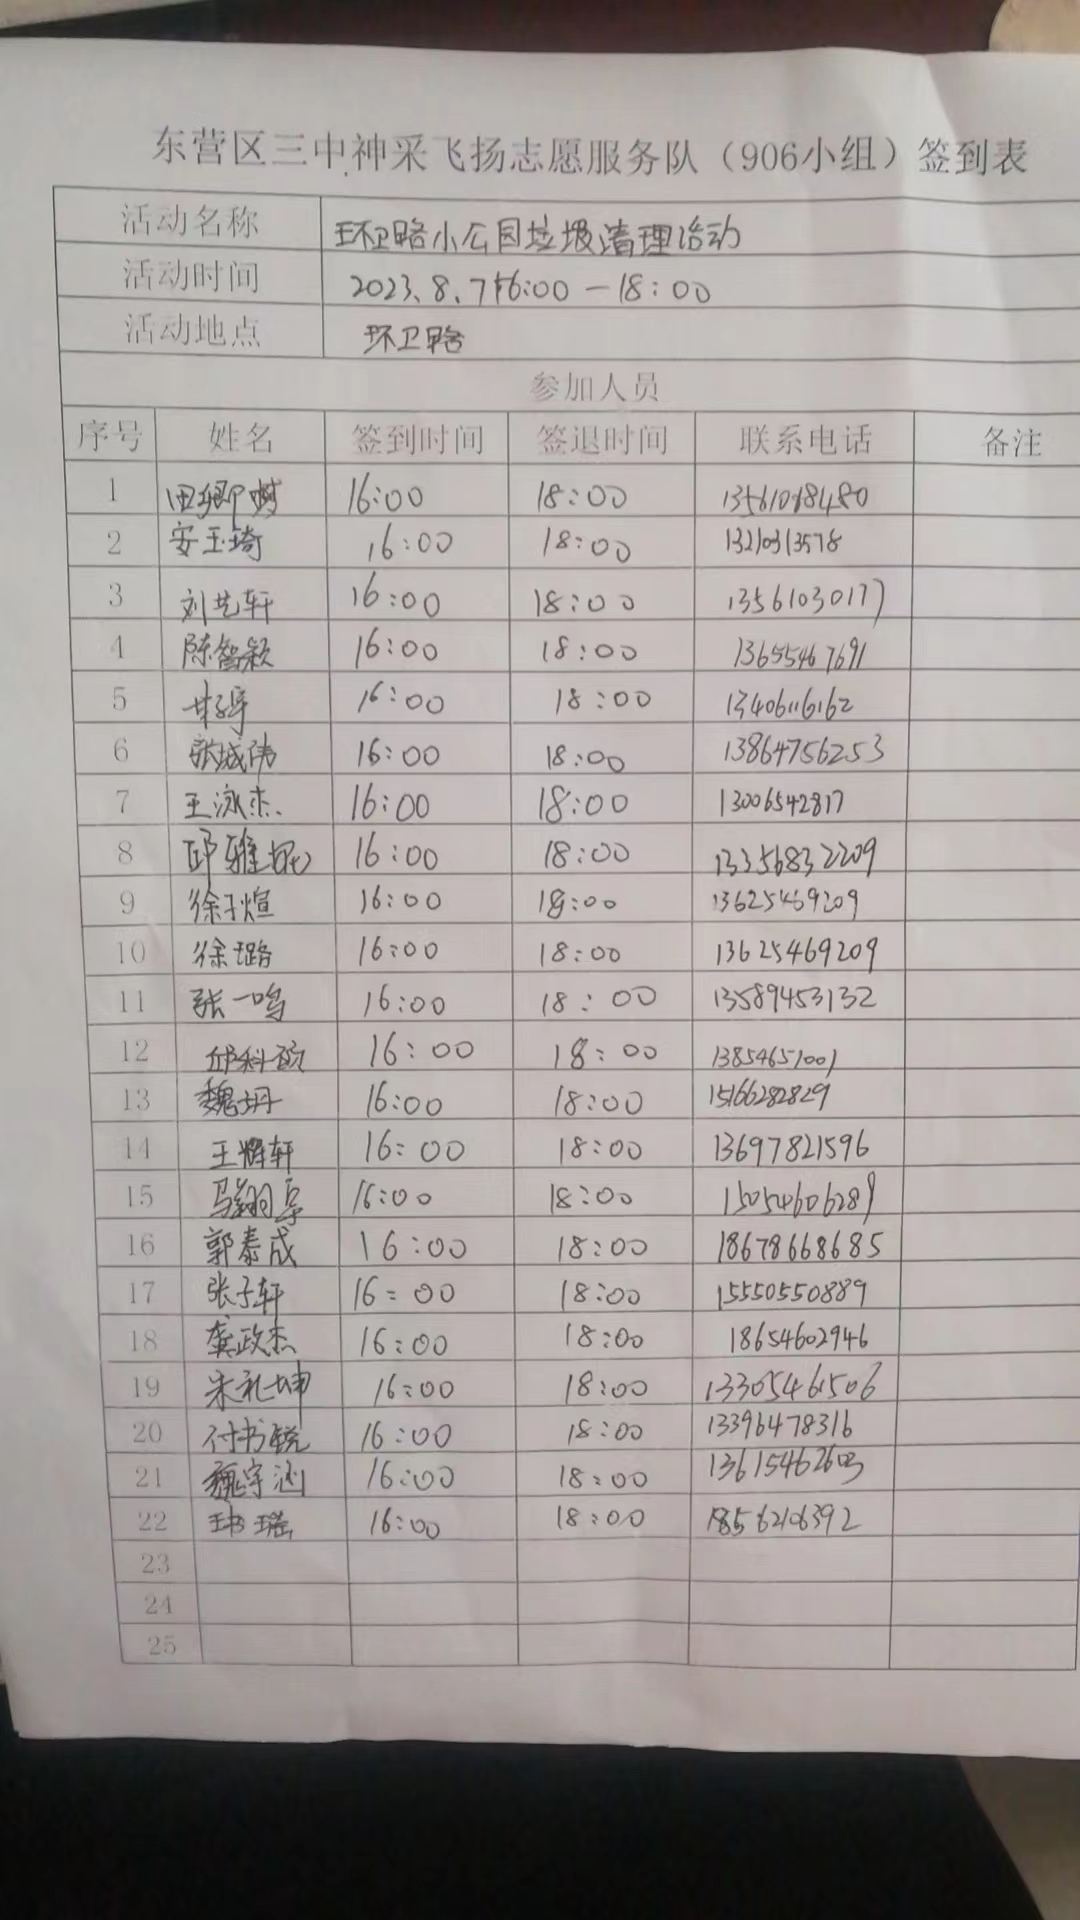 东营区三中神采飞扬志愿服务队（906小组）签到表
活动名称 环卫路小公园垃圾清理活动
活动时间 2023.8.7 16:00－18:00
活动地点 环卫路
参加人员
序号 姓名 签到时间 签退时间 联系电话 备注
1 16:00 18:00 13561068480
2 安玉琦 16:00 18:00 13210313578
3 刘艺轩 16:00 18:00 13561030177
4 陈智颖 16:00 18:00 13655467691
5 16:00 18:00 13406116162
6 张城伟 16:00 18:00 13864756253
7 王泳杰 16:00 18:00 13006542817
8 邱雅妮 16:00 18:00 13356832209
9 徐子煊 16:00 18:00 13625469209
10 徐璐 16:00 18:00 13625469209
11 张一鸣 16:00 18:00 13589453132
12 邱科硕 16:00 18:00 13854651001
13 魏坍 16:00 18:00 15166282829
14 王辉轩 16:00 18:00 13697821596
15 16:00 18:00 15054606289
16 郭泰成 16:00 18:00 18678668685
17 张子轩 16:00 18:00 15550550889
18 龚政杰 16:00 18:00 18654602946
19 朱礼坤 16:00 18:00 13305461506
20 付书锐 16:00 18:00 13396478316
21 魏宇涵 16:00 18:00 13615462603
22 16:00 18:00 18562106392
23
24
25